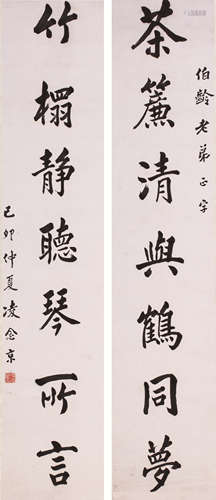 伯齡老弟正字
茶簾清與鶴同夢
竹榻静聽琴所言
己卯仲夏凌念京